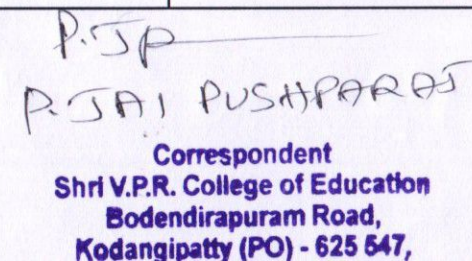 P. JP
P. JAI PUSHPARAJ
Correspondent
Shri V.P.R. College of Education
Bodendirapuram Road,
Kodangipatty (PO) - 625 547,